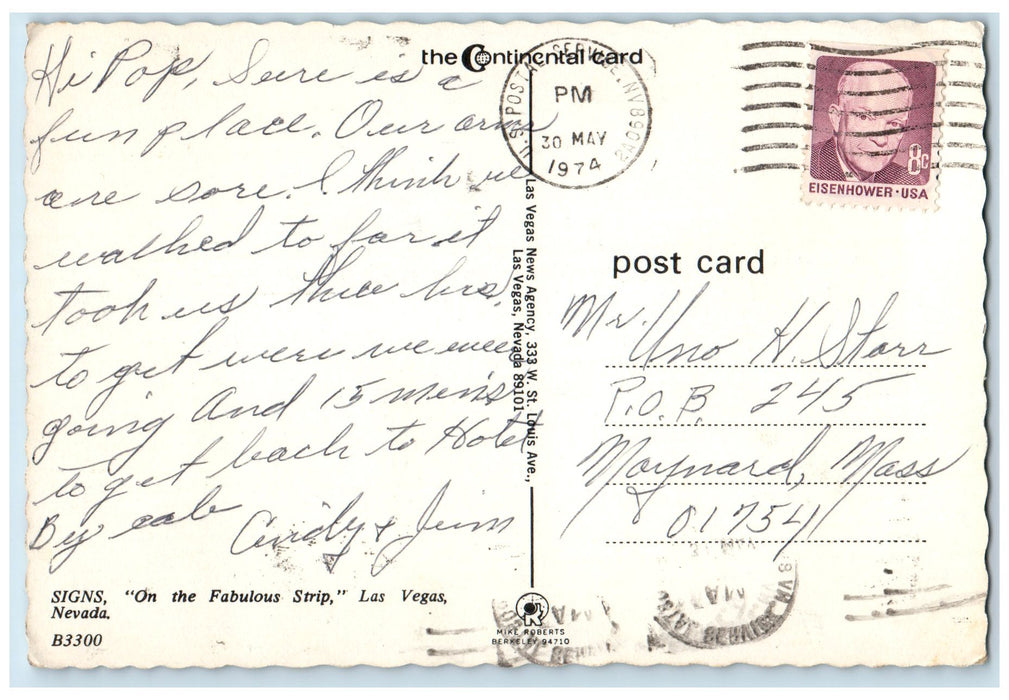 the Continental card
Hi Pop, Sure is a
fun place. Our arms
are sore. I think we
walked to far it
took us three hrs.
to get were we were
going And 15 mins
to get back to Hotel
By cab
Cindy & Jim
SIGNS, "On the Fabulous Strip," Las Vegas,
Nevada.
B3300
Las Vegas News Agency, 333 W. St. Louis Ave.,
Las Vegas, Nevada 89101
MIKE ROBERTS
BERKELEY 94710
U.S. POSTAL SERVICE. NV 890
PM
30 MAY
1974
8c
EISENHOWER·USA
post card
Mr. Uno H. Starr
P.O.B. 245
Maynard, Mass
01754